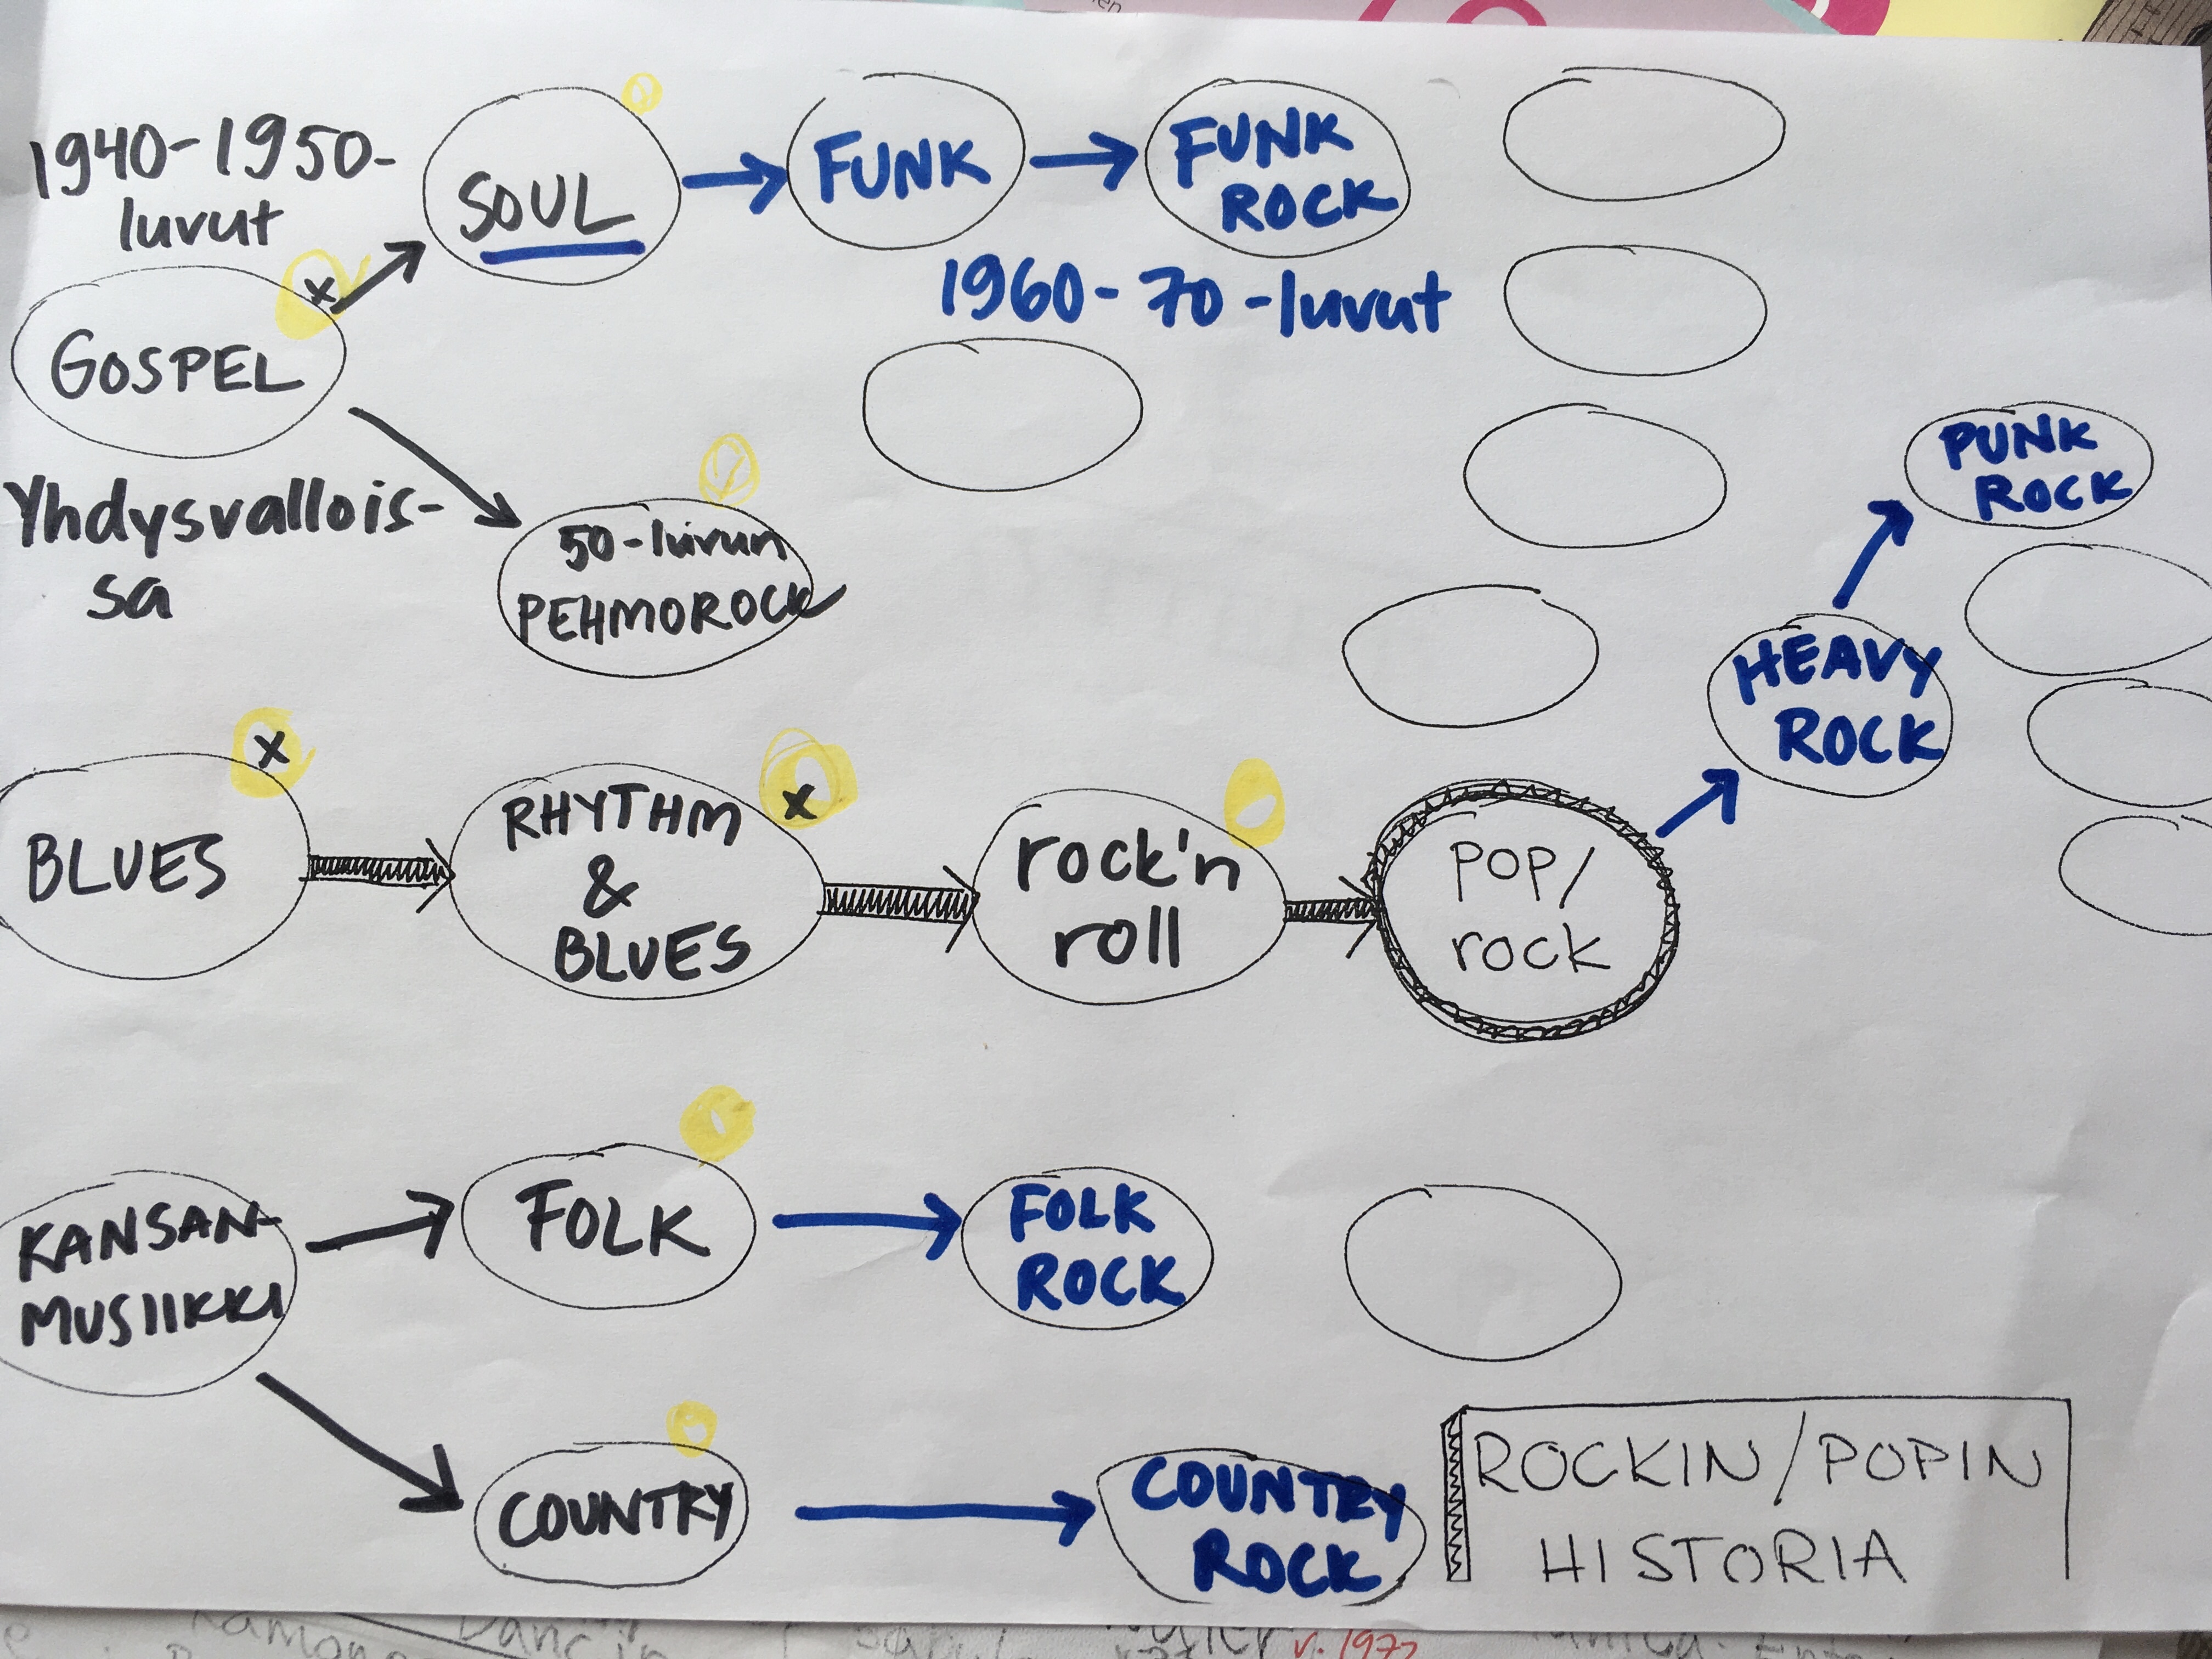 1940-1950-
luvut
SOUL
FUNK
FUNK
ROCK
1960-70-luvut
GOSPEL
x
Yhdysvallois-
sa
50-luvun
PEHMOROCK
PUNK
ROCK
HEAVY
ROCK
BLUES
x
RHYTHM
&
BLUES
x
rock'n
roll
POP/
rock
KANSAN-
MUSIIKKI
FOLK
FOLK
ROCK
COUNTRY
COUNTRY
ROCK
ROCKIN/POPIN
HISTORIA